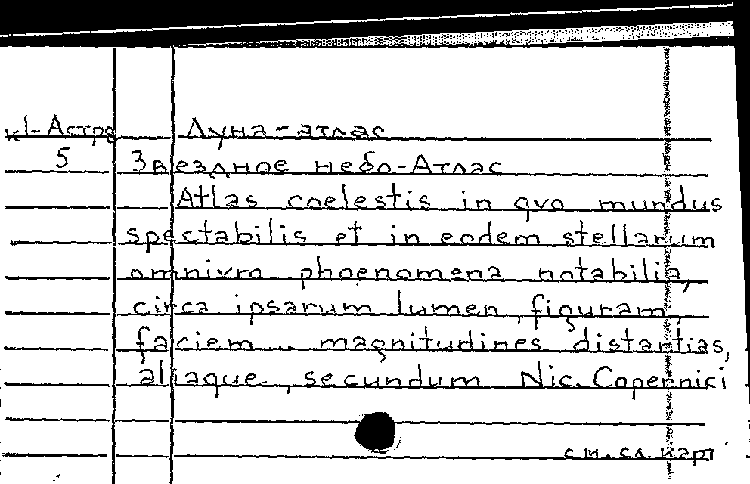 к1-Астра Луна-атлас
5 Звездное небо-Атлас
Atlas coelestis in qvo mundus
spectabilis et in eodem stellarum
omnivro phoenomena notabilia,
circa ipsarum lumen, figuram,
faciem, magnitudines distantias,
aliaque, secundum Nic. Copernici
см. сл. карт